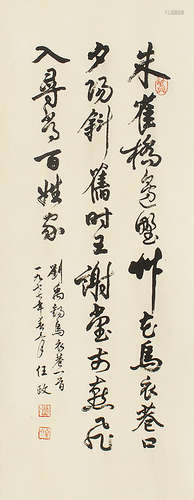 朱雀橋邊野艸花烏衣巷口
夕陽斜舊时王謝堂前燕飛
入尋常百姓家
劉禹錫烏衣巷一首
一九七七年春月任政